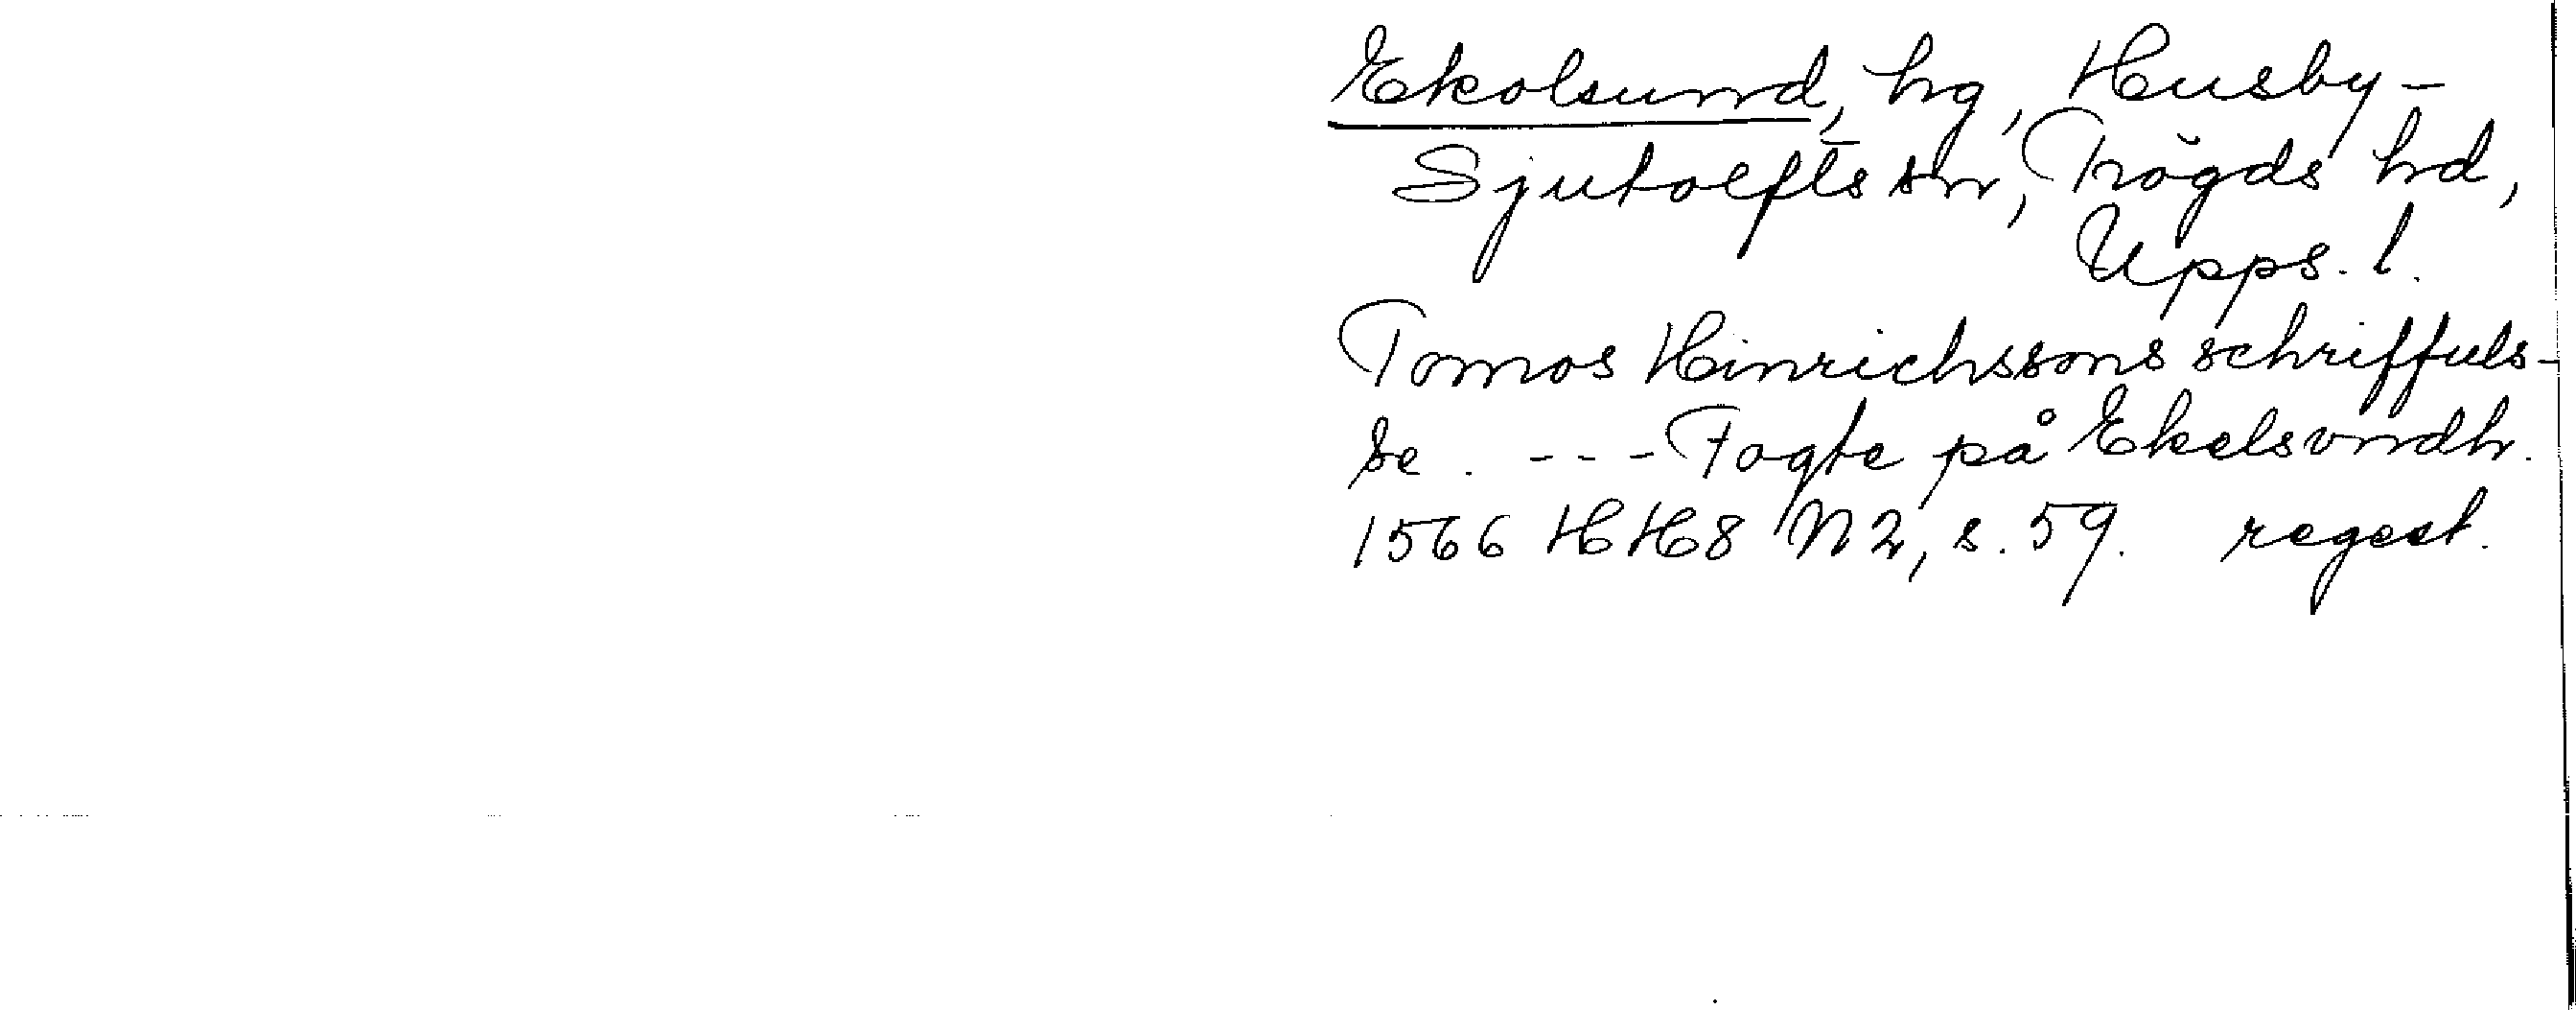 Ekolsund, hg, Husby-
Sjutolfts sn, Trögds hd,
Upps. l.
Tomos Hinrichssons schriffuls-
se. --- Fogte på Ekelsvndh.
1566 HH8 N2, s. 59. regest.